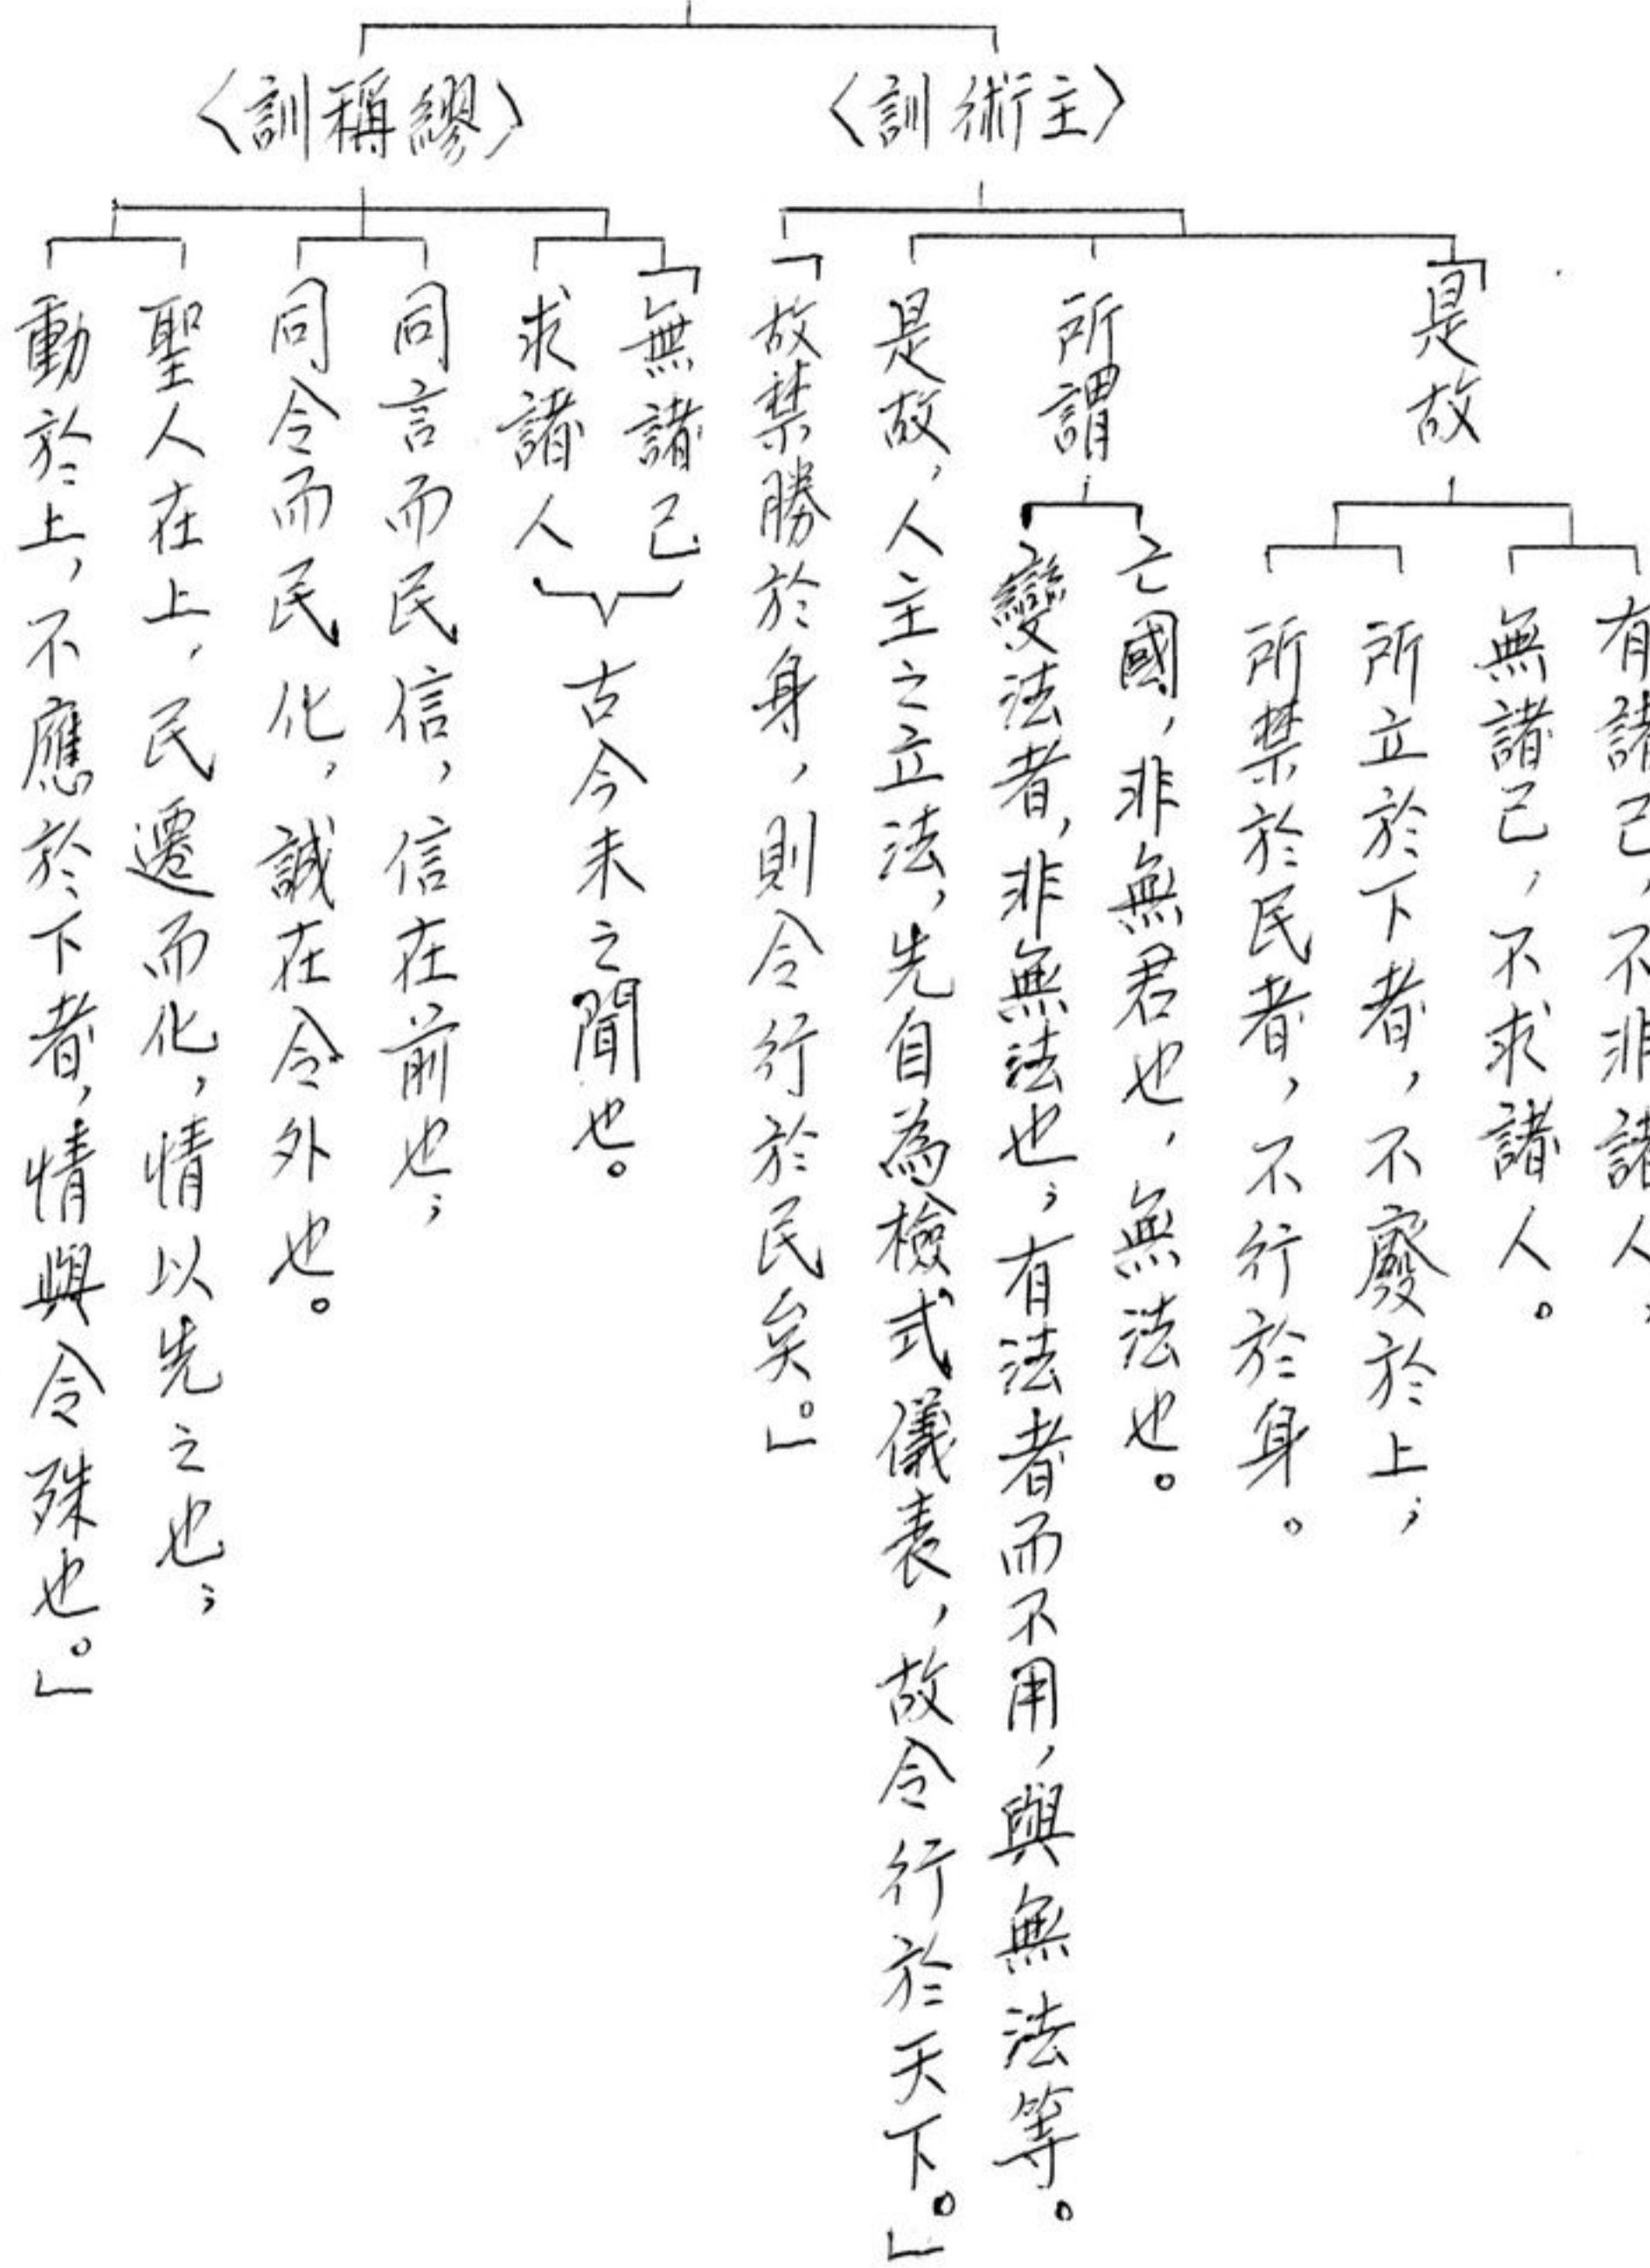 〈主術訓〉
「是故
有諸己，不非諸人；
無諸己，不求諸人。
所立於下者，不廢於上；
所禁於民者，不行於身。
所謂
亡國，非無君也，無法也。
變法者，非無法也；有法者而不用，與無法等。
是故，人主之立法，先自為檢式儀表，故令行於天下。」
「故禁勝於身，則令行於民矣。」
〈繆稱訓〉
「無諸己
求諸人
古今未之聞也。
同言而民信，信在前也；
同令而民化，誠在令外也。
聖人在上，民遷而化，情以先之也；
動於上，不應於下者，情與令殊也。」